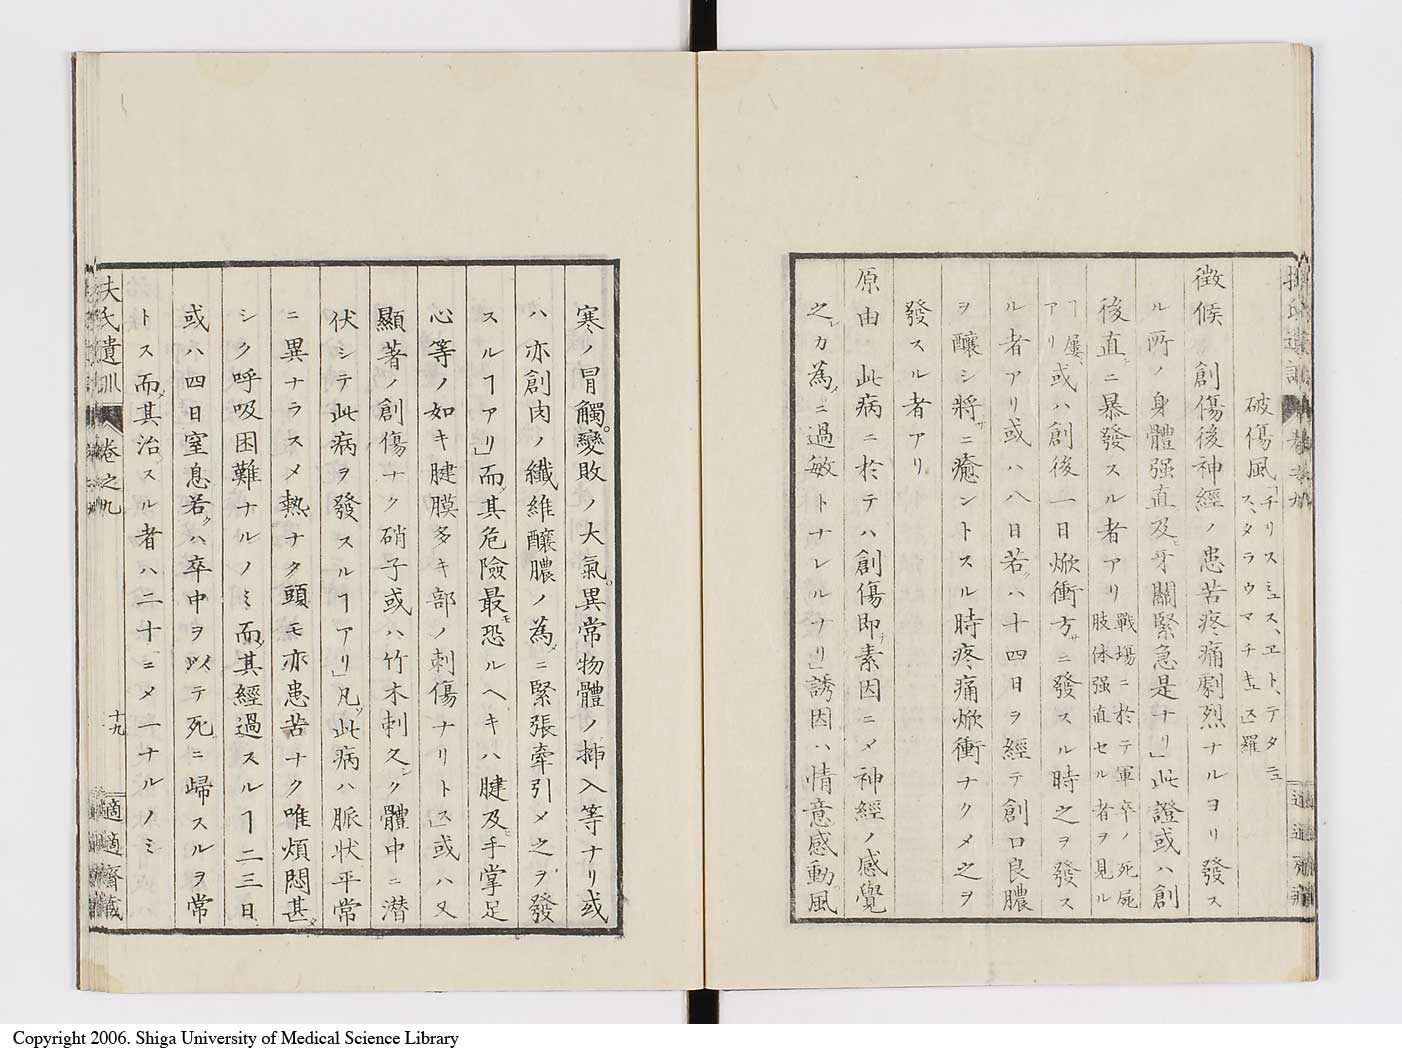 破傷風「チリスミュス、ヱト、テタニュス、タラウマチキュス」羅
徴候 創傷後神經ノ患苦疼痛劇烈ナルヨリ發ス
ル所ノ身體强直及ヒ牙關緊急是ナリ」此證或ハ創
後直ニ暴發スル者アリ戰場ニ於テ軍卒ノ死屍肢体强直セル者ヲ見ル
ヿ屢アリ或ハ創後一日焮衝方サニ發スル時之ヲ發ス
ル者アリ或ハ八日若クハ十四日ヲ經テ創口良膿
ヲ釀シ將サニ癒ントスル時疼痛焮衝ナクメ之ヲ
發スル者アリ
原由 此病ニ於テハ創傷即チ素因ニメ神經ノ感覺
之カ為メニ過敏トナレルナリ」誘因ハ情意感動風
寒ノ冒觸。變敗ノ大氣。異常物體ノ揷入等ナリ或
ハ亦創肉ノ纖維釀膿ノ為メニ緊張牽引メ之ヲ發
スルヿアリ」而メ其危險最モ恐ルヘキハ腱及ヒ手掌足
心等ノ如キ腱膜多キ部ノ刺傷ナリトス」或ハ又
顯著ノ創傷ナク硝子或ハ竹木刺久シク體中ニ潜
伏シテ此病ヲ發スルヿアリ」凡ソ此病ハ脈状平常
ニ異ナラスメ熱ナク頭モ亦患苦ナク唯煩悶甚メ
シク呼吸困難ナルノミ而メ其經過スルヿ二三日
或ハ四日窒息若クハ卒中ヲ以テ死ニ歸スルヲ常
トス而メ其治スル者ハ二十ニメ一ナルノミ
扶氏遺訓 卷之九 十九 適適齋藏